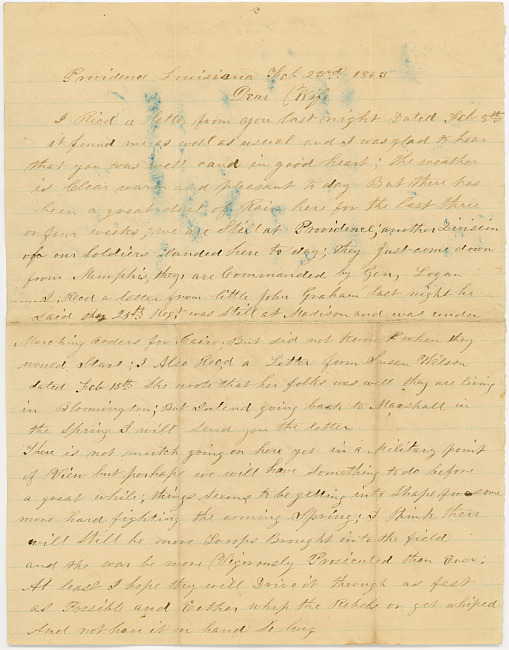 Providence Louisiana Feb 23rd 1863
Dear Wife
I Recd a letter from you last night Dated Feb 8th
it found me as well as usual and I was glad to hear
that you was well and in good heart; the weather
is Clear warm and pleasant to day But there has
been a great deel of Rain here for the last three
or four weeks; we are Still at Providence; another Division
of our Soldiers landed here to day; they Just come down
from Memphis, they are Commanded by Genl Logan
I Recd a letter from little John Graham last night he
Said the 25th Regt was Still at Madison and was under
Marching Orders for Cairo But did not know when they
would Start; I Also Recd a Letter from Susan Wilson
dated Feb 15th She wrote that her folks was well they are living
in Bloomington; But Intend going back to Marshall in
the Spring I will Send you the letter
There is not mutch going on here yet in a Military point
of View but perhaps we will have Something to do before
a great while; things Seems to be getting into Shape for some
more hard fighting the coming Spring; I think there
will Still be more Troops Brought into the field
and the war be more Vigorously Prosicuted than Ever;
At least I hope they will Drive it through as fast
as Possible and Eather whip the Rebels or get whiped
And not have it on hand So long